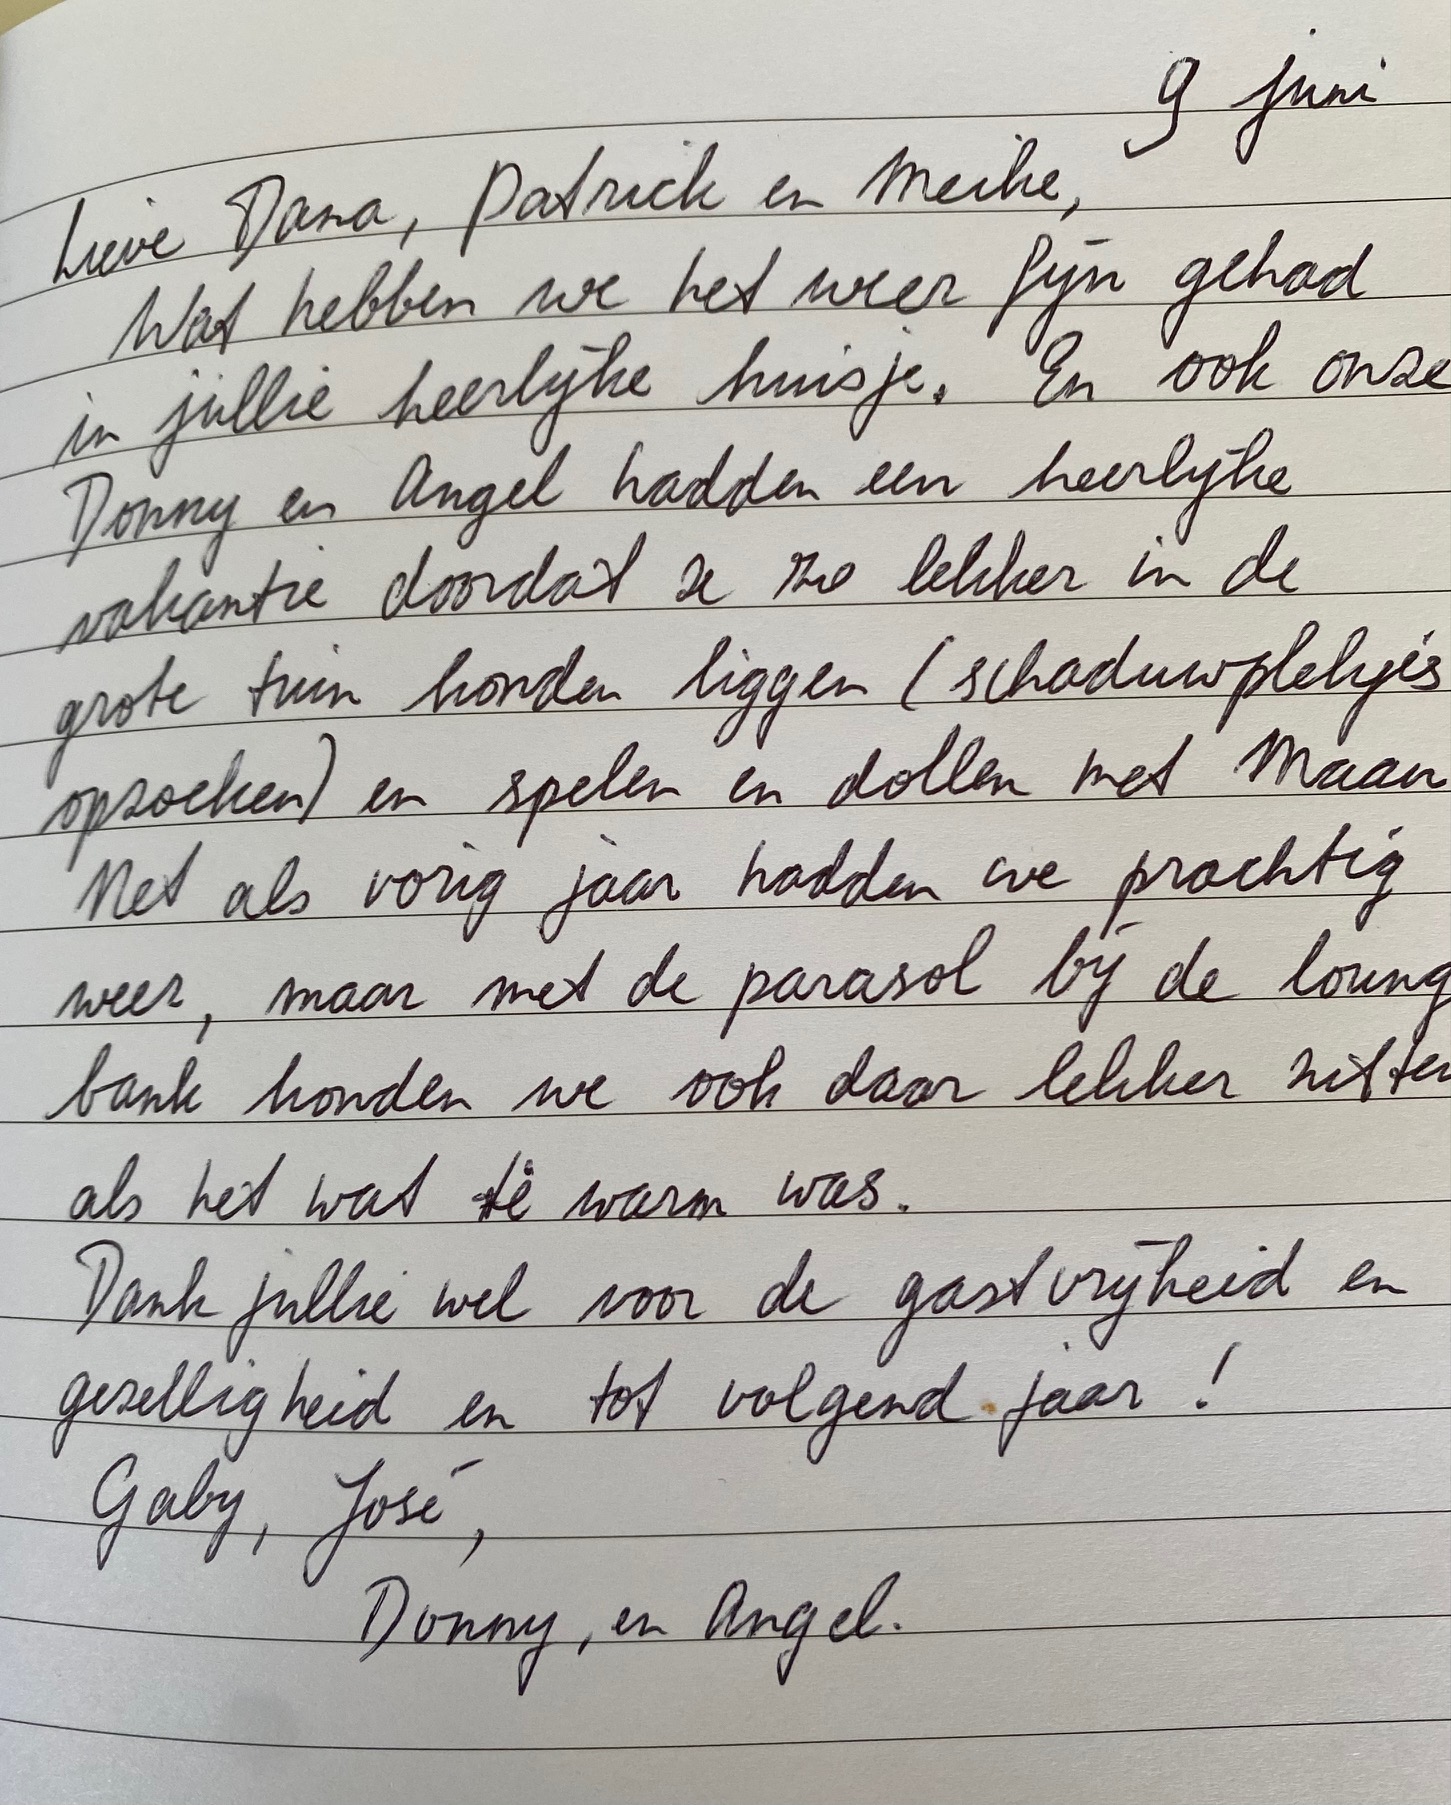 9 juni
Lieve Dana, Patrick en Meike,
Wat hebben we het weer fijn gehad
in jullie heerlijke huisje. En ook onze
Donny en Angel hadden een heerlijke
vakantie doordat ze zo lekker in de
grote tuin konden liggen (schaduwplekjes
opzoeken) en spelen en dollen met Maan
Net als vorig jaar hadden we prachtig
weer, maar met de parasol bij de loung
bank konden we ook daar lekker zitten
als het wat te warm was.
Dank jullie wel voor de gastvrijheid en
gezelligheid en tot volgend jaar!
Gaby, José,
Donny, en Angel.